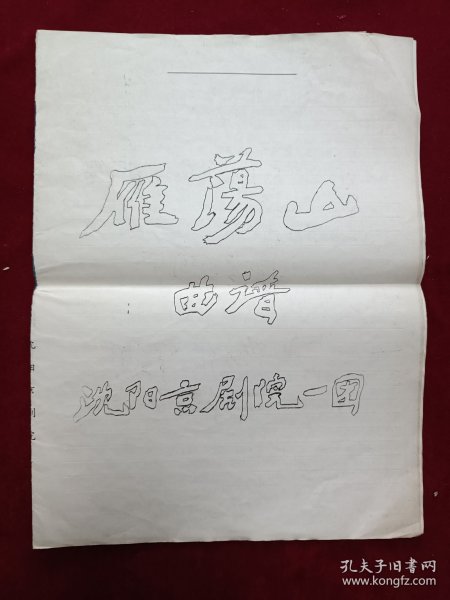 雁荡山
曲谱
沈阳京剧院一团
沈阳京剧院
孔夫子旧书网
www.kongfz.com